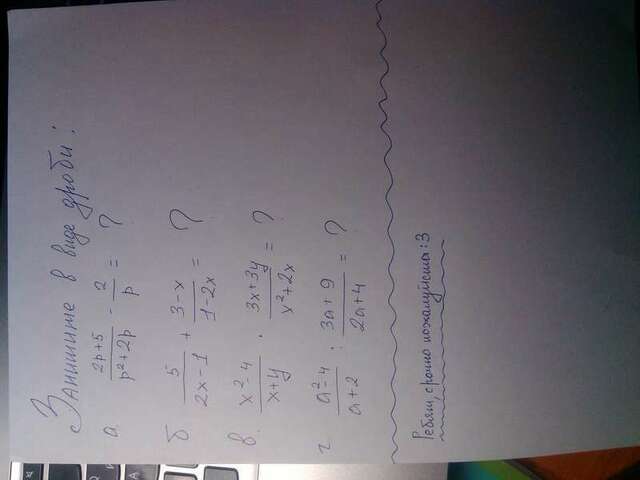 Запишите в виде дроби:
а. (2p+5)/(p²+2p) - 2/p = ?
б 5/(2x-1) + (3-x)/(1-2x) = ?
в. (x²-4)/(x+y) · (3x+3y)/(x²+2x) = ?
г (a²-4)/(a+2) : (3a+9)/(2a+4) = ?
Ребят, срочно пожалуйста :3